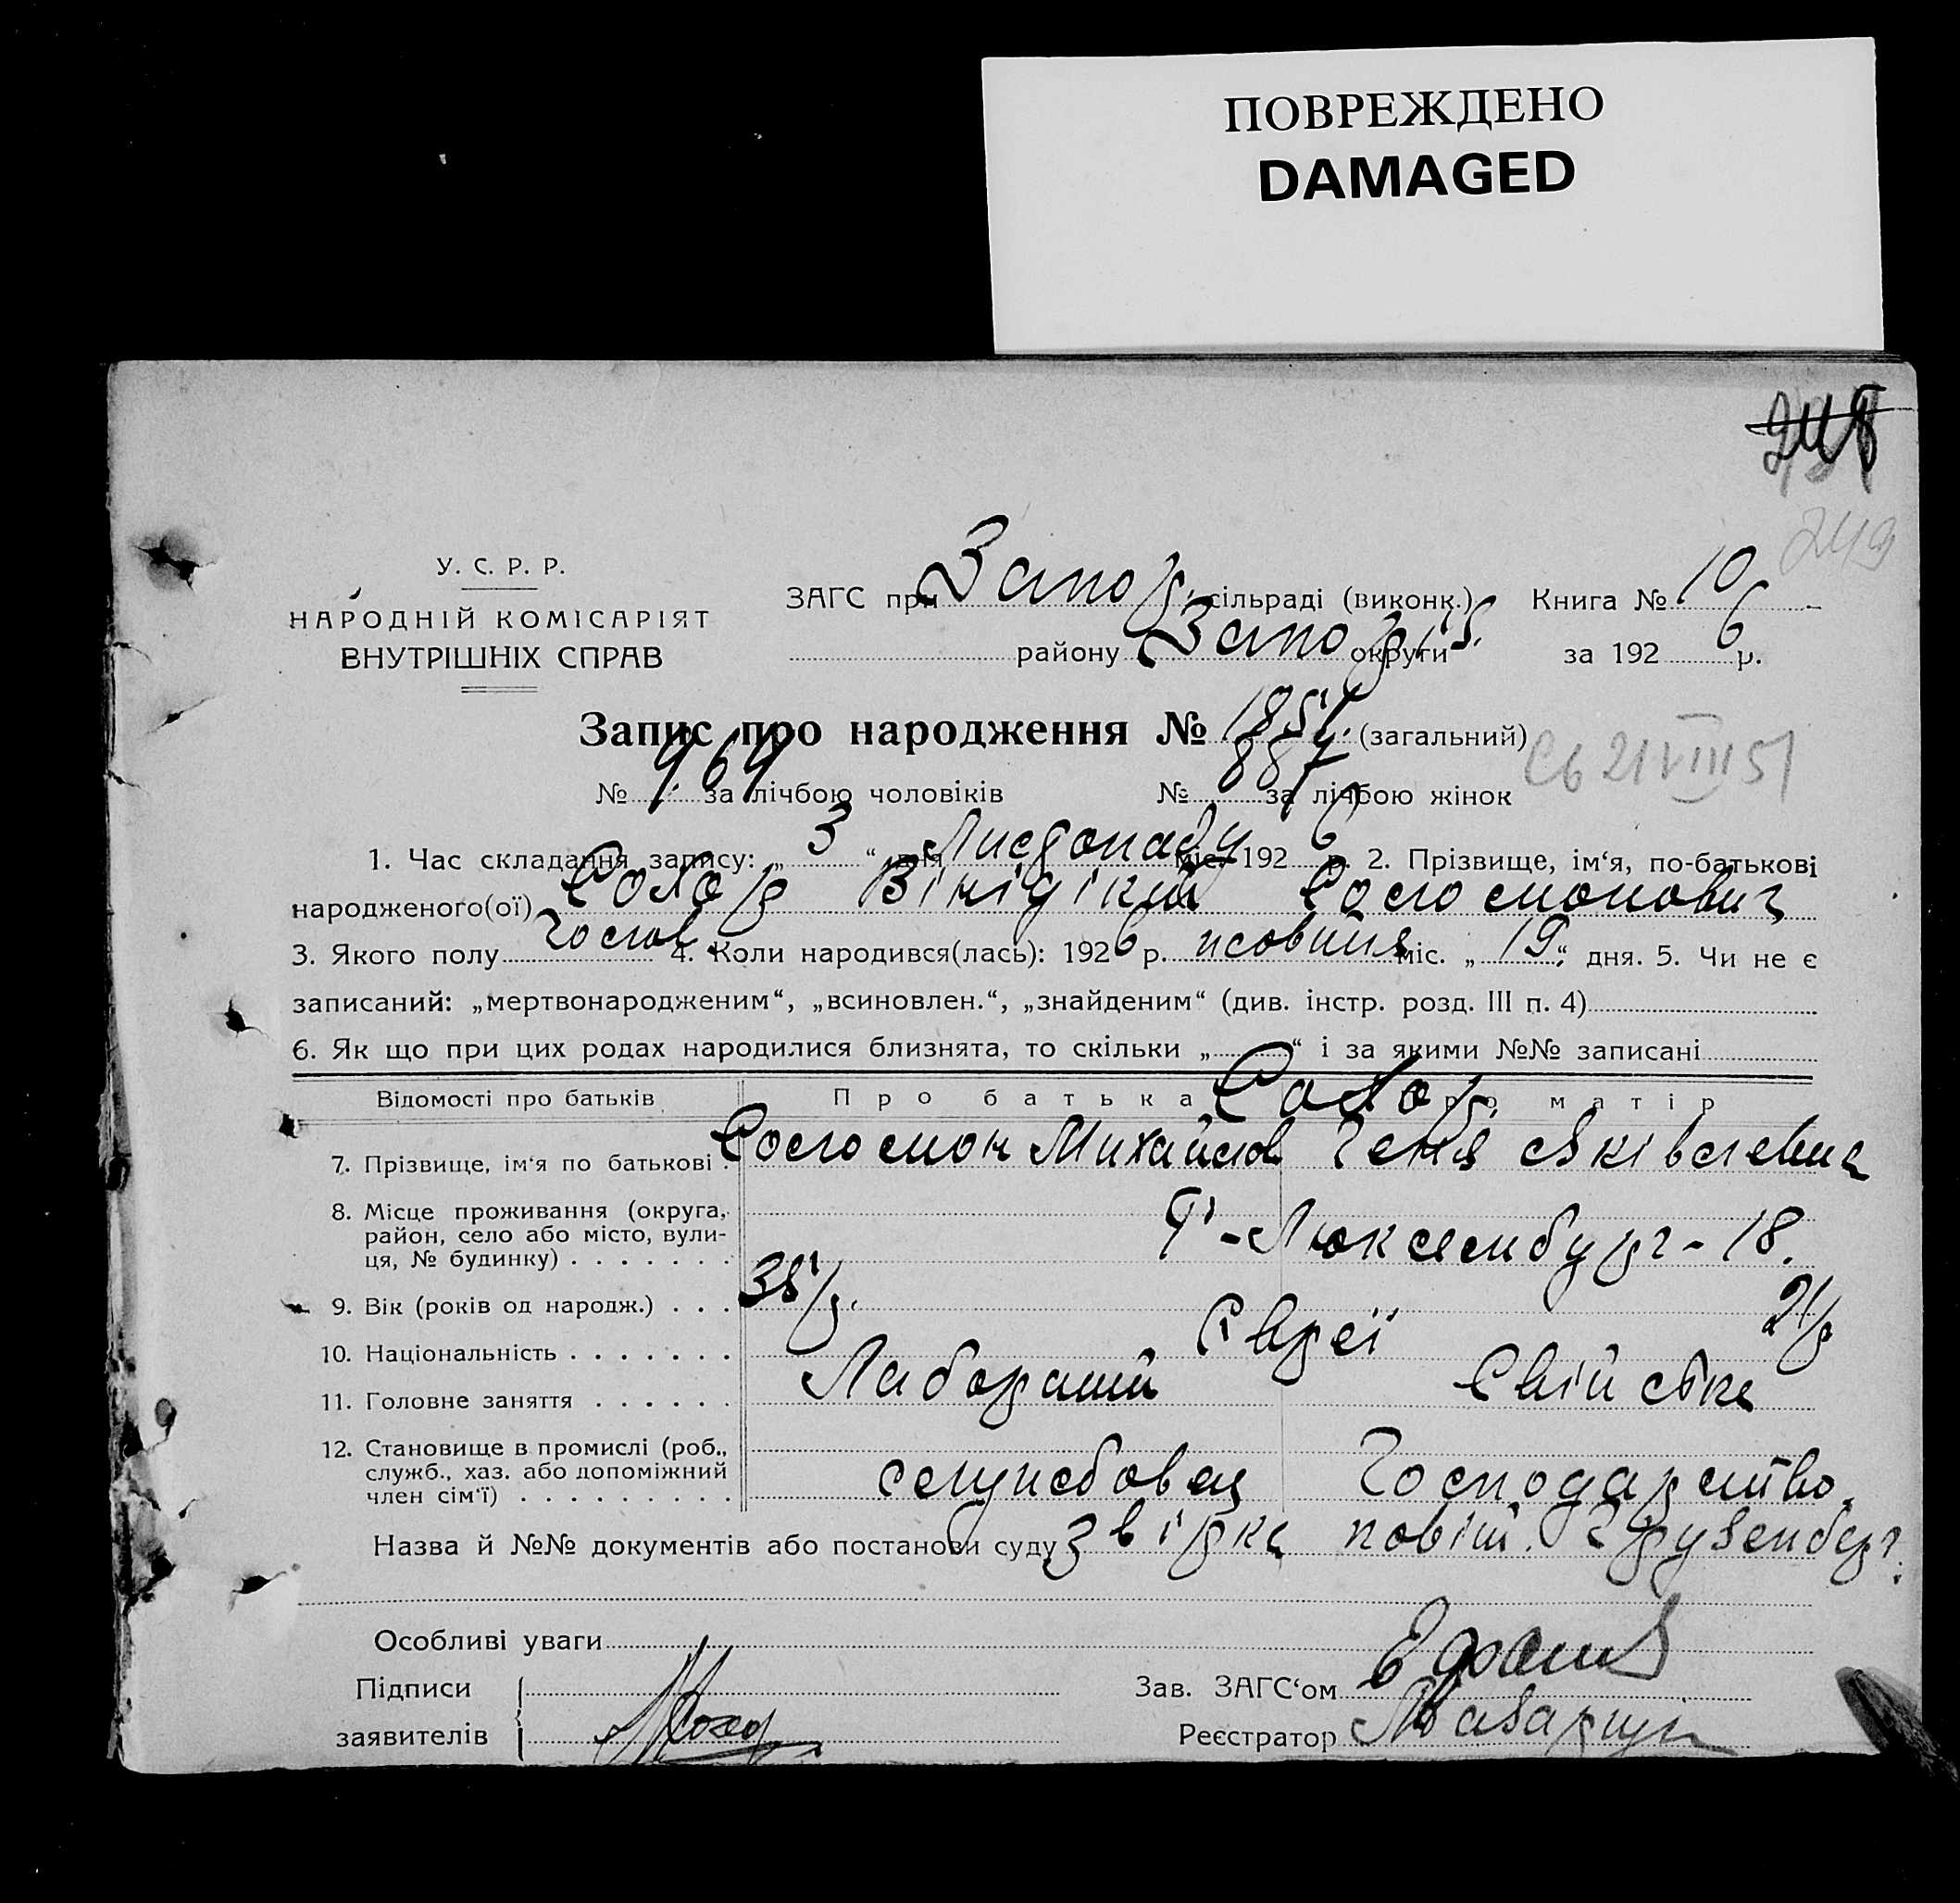 ПОВРЕЖДЕНО
DAMAGED
249
У. С. Р. Р.
НАРОДНІЙ КОМІСАРІЯТ
ВНУТРІШНІХ СПРАВ
ЗАГС при Запор. сільраді (виконк.) Книга № 10
району Запоріз. округи за 1926 р.
Запис про народження № 1851. (загальний)
№ 964 за лічбою чоловіків № 887 за лічбою жінок
Сб 21 VIII 51
1. Час складання запису: „3“ дня Листопаду міс. 1926 р. 2. Прізвище, ім‘я, по-батькові
народженого(ої) Соломонович
3. Якого полу Чолов. 4. Коли народився(лась): 1926 р. жовтня міс. „19“ дня. 5. Чи не є
записаний: „мертвонародженим“, „всиновлен.“, „знайденим“ (див. інстр. розд. III п. 4)
6. Як що при цих родах народилися близнята, то скільки „ “ і за якими №№ записані
Відомості про батьків Про батька Про матір
7. Прізвище, ім‘я по батькові Соломон Михайлов Геня Яківлевна
8. Місце проживання (округа,
район, село або місто, вули-
ця, № будинку) Р-Люксембург-18.
9. Вік (років од народж.) 35 р. 21 р
10. Національність Євреї
11. Головне заняття Лаборант Свійське
12. Становище в промислі (роб.,
служб., хаз. або допоміжний
член сім‘ї) службовец Господарство.
Назва й №№ документів або постанови суду Звірка повіт. Грузенберг.
Особливі уваги
Підписи
заявителів
Зав. ЗАГС‘ом
Реєстратор